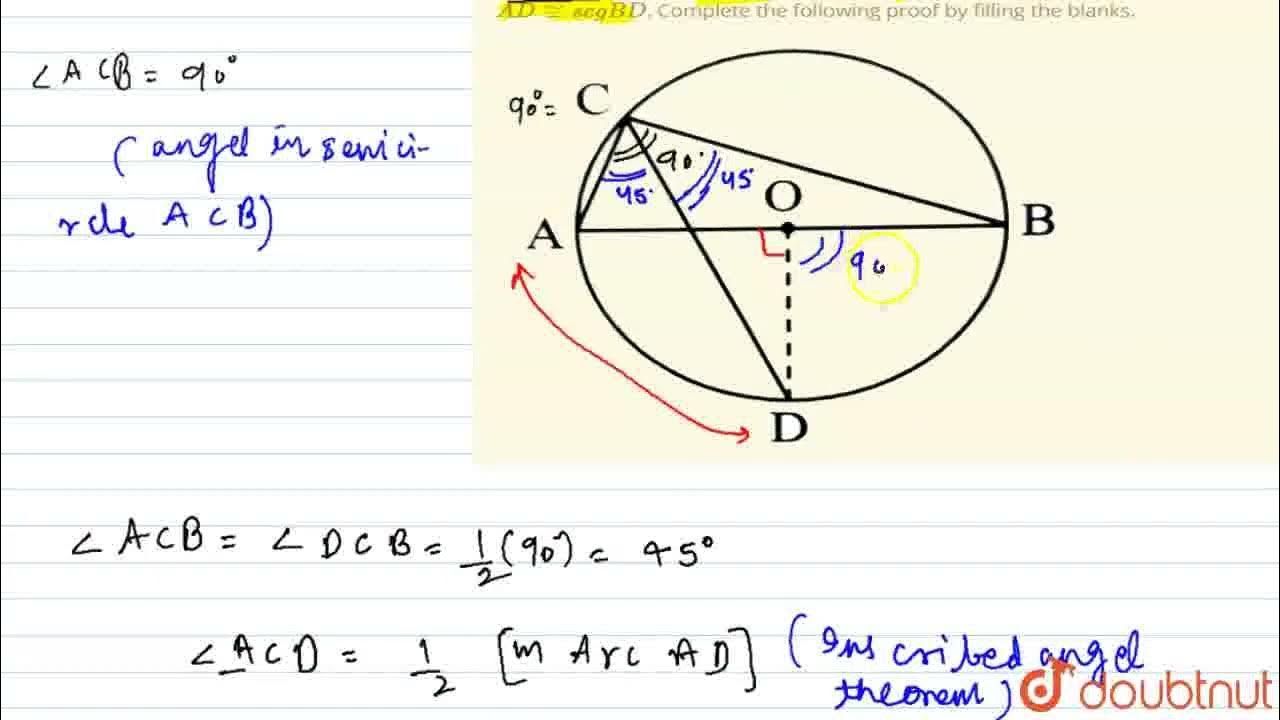 AD ≅ segBD. Complete the following proof by filling the blanks.
∠ACB = 90°
(angel in semici-
rcle ACB)
90° = C
90°
45°
45
O
A
B
90
D
∠ACB = ∠DCB = 1/2 (90°) = 45°
∠ACD = 1/2 [m Arc AD] (Inscribed angel
theorem)
doubtnut